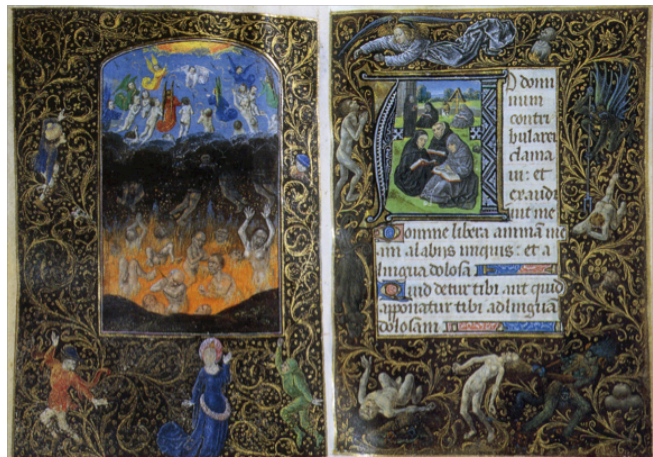 AD domi
num
contri
bularer
clama
ui: et
exaudi
uit me
Domine libera animam me
am a labijs iniquis: et a
lingua dolosa
Quid detur tibi aut quid
apponatur tibi ad lingua
dolosam